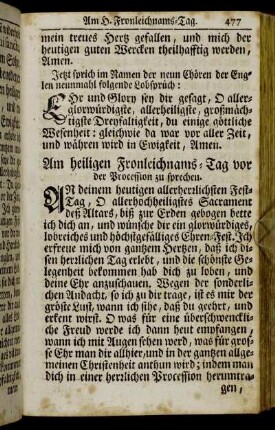 Am H. Fronleichnams-Tag. 477
mein treues Hertz gefallen, und mich der
heutigen guten Wercken theilhafftig werden,
Amen.
Jetzt sprich im Namen der neun Chören der Eng-
len neunmahl folgende Lobspruch:
Ehr und Glory sey dir gesagt, O aller-
glorwürdigste, allerheiligste, großmäch-
tigste Dreyfaltigkeit, du einige göttliche
Wesenheit: gleichwie da war vor aller Zeit,
und währen wird in Ewigkeit, Amen.
Am heiligen Fronleichnams-Tag vor
der Procession zu sprechen.
AN deinem heutigen allerherrlichsten Fest-
Tag, O allerhochheiligstes Sacrament
deß Altars, biß zur Erden gebogen bette
ich dich an, und wünsche dir ein glorwürdiges,
lobreiches und höchstgefälliges Ehren-Fest. Ich
erfreue mich von gantzem Hertzen, daß ich di-
sen herrlichen Tag erlebt, und die schönste Ge-
legenheit bekommen hab dich zu loben, und
deine Ehr anzuschauen. Wegen der sonderli-
chen Andacht, so ich zu dir trage, ist es mir der
gröste Lust, wann ich sihe, daß du geehrt, und
erkent wirst. O was für eine überschwenckli-
che Freud werde ich dann heut empfangen,
wann ich mit Augen sehen werd, was für gros-
se Ehr man dir allhier, und in der gantzen allge-
meinen Christenheit anthun wird; indem man
dich in einer herrlichen Procession herumtra-
gen,